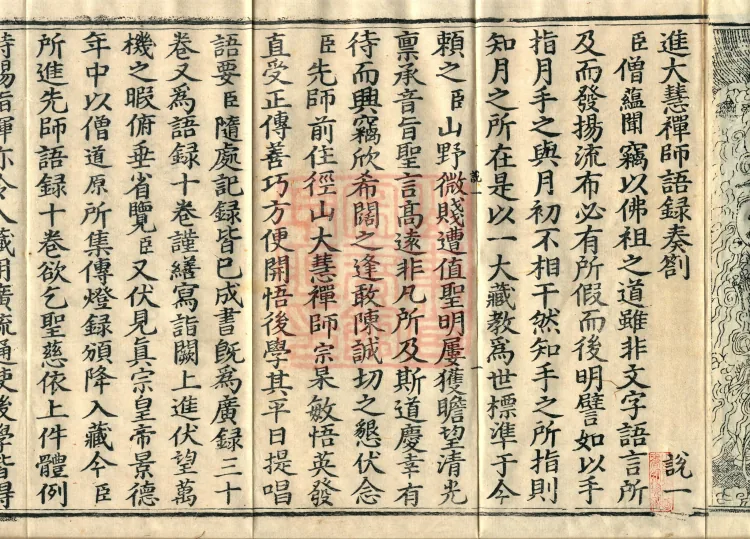 進大慧禪師語録奏劄 說一
臣僧蘊聞竊以佛祖之道雖非文字語言所
及而發揚流布必有所假而後明譬如以手
指月手之與月初不相干然知手之所指則
知月之所在是以一大藏教爲世標準于今
頼之臣山野微賤遭值聖明屢獲瞻望清光
稟承音旨聖言高遠非凡所及斯道慶幸有
待而興竊欣希闊之逢敢陳誠切之懇伏念
臣先師前住徑山大慧禪師宗杲敏悟英發
直受正傳善巧方便開悟後學其平日提唱
語要臣隨處記録皆已成書旣爲廣録三十
卷又爲語録十卷謹繕寫詣闕上進伏望萬
機之暇俯垂省覽臣又伏見真宗皇帝景德
年中以僧道原所集傳燈録頒降入藏今臣
所進先師語録十卷欲乞聖慈依上件體例